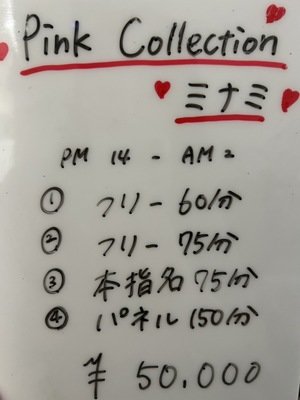 Pink Collection
ミナミ
PM 14 - AM 2
① フリー 60分
② フリー 75分
③ 本指名 75分
④ パネル 150分
¥ 50.000